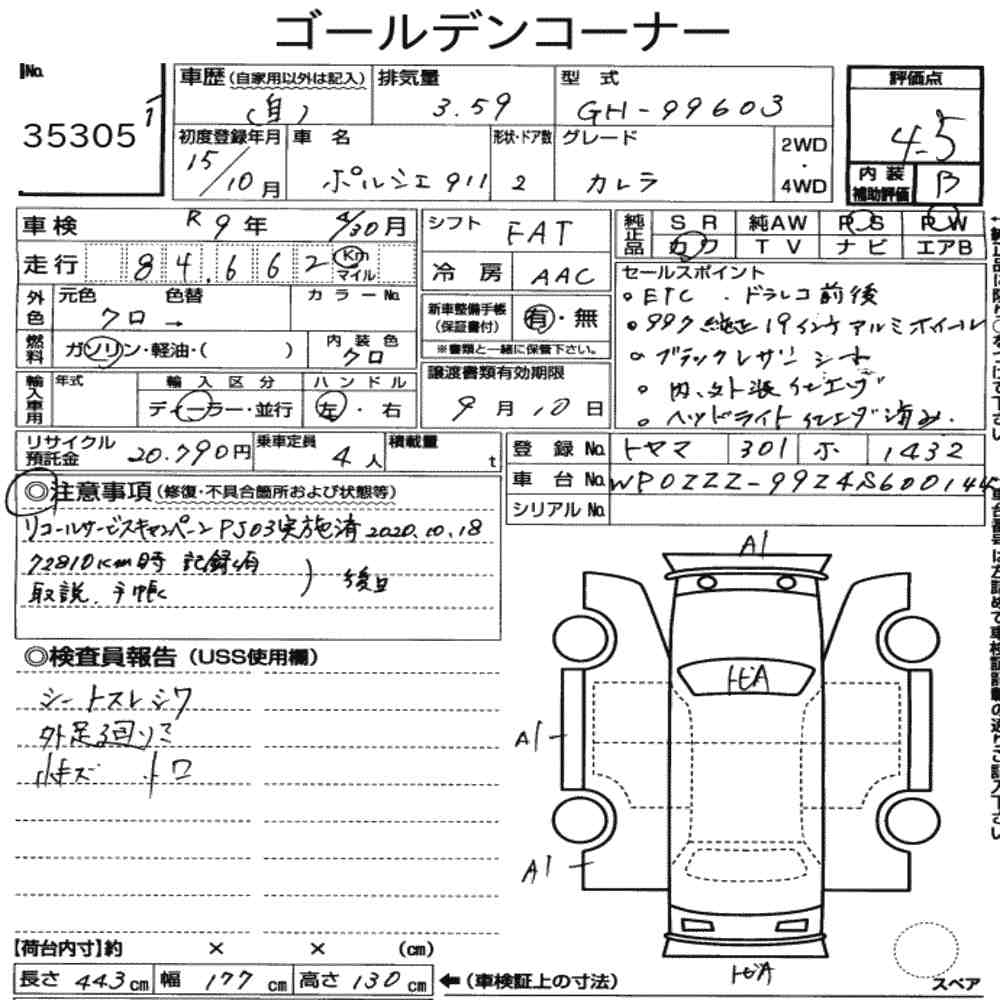 ゴールデンコーナー
No.
35305
車歴(自家用以外は記入)
(自)
排気量
3.59
型 式
GH-99603
評価点
4.5
初度登録年月
15/10月
車 名
ポルシェ911
形状・ドア数
2
グレード
カレラ
2WD
・
4WD
内装
補助評価
B
車検
R9年 4/30月
シフト
FAT
純正品
SR 純AW PS PW
カワ TV ナビ エアB
走行
84.662
Km
マイル
冷 房
AAC
セールスポイント
。ETC . ドラレコ前後
。997純正19インチアルミホイール
。ブラックレザーシート
。内、外装仕上げ
。ヘッドライト仕上げ済み.
外色
元色 色替 カラーNo.
クロ →
新車整備手帳
(保証書付)
有・無
※書類と一緒に保管下さい。
燃料
ガソリン・軽油・( )
内装色
クロ
譲渡書類有効期限
9月10日
輸入車用
年式
輸入区分
ディーラー・並行
ハンドル
左・右
リサイクル
預託金
20.790円
乗車定員
4人
積載量
t
登 録 No.
トヤマ 301 ホ 1432
車 台 No.
WP0ZZZ-99Z4S600144
シリアル No.
◎注意事項(修復・不具合箇所および状態等)
リコールサービスキャンペーンPJ03実施済 2020.10.18
72810km時 記録有
取説、手帳
) 後日
◎検査員報告(USS使用欄)
シートスレシワ
外足廻りサビ
小キズ 小凹
A1
トビA
A1
A1
トビA
スペア
【荷台内寸】約 × × (cm)
長さ 443cm 幅 177cm 高さ130cm
←(車検証上の寸法)